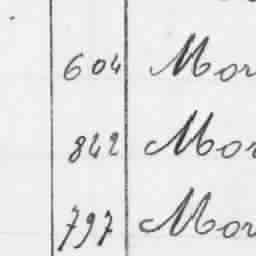 604 Mor
842 Mor
797 Mor